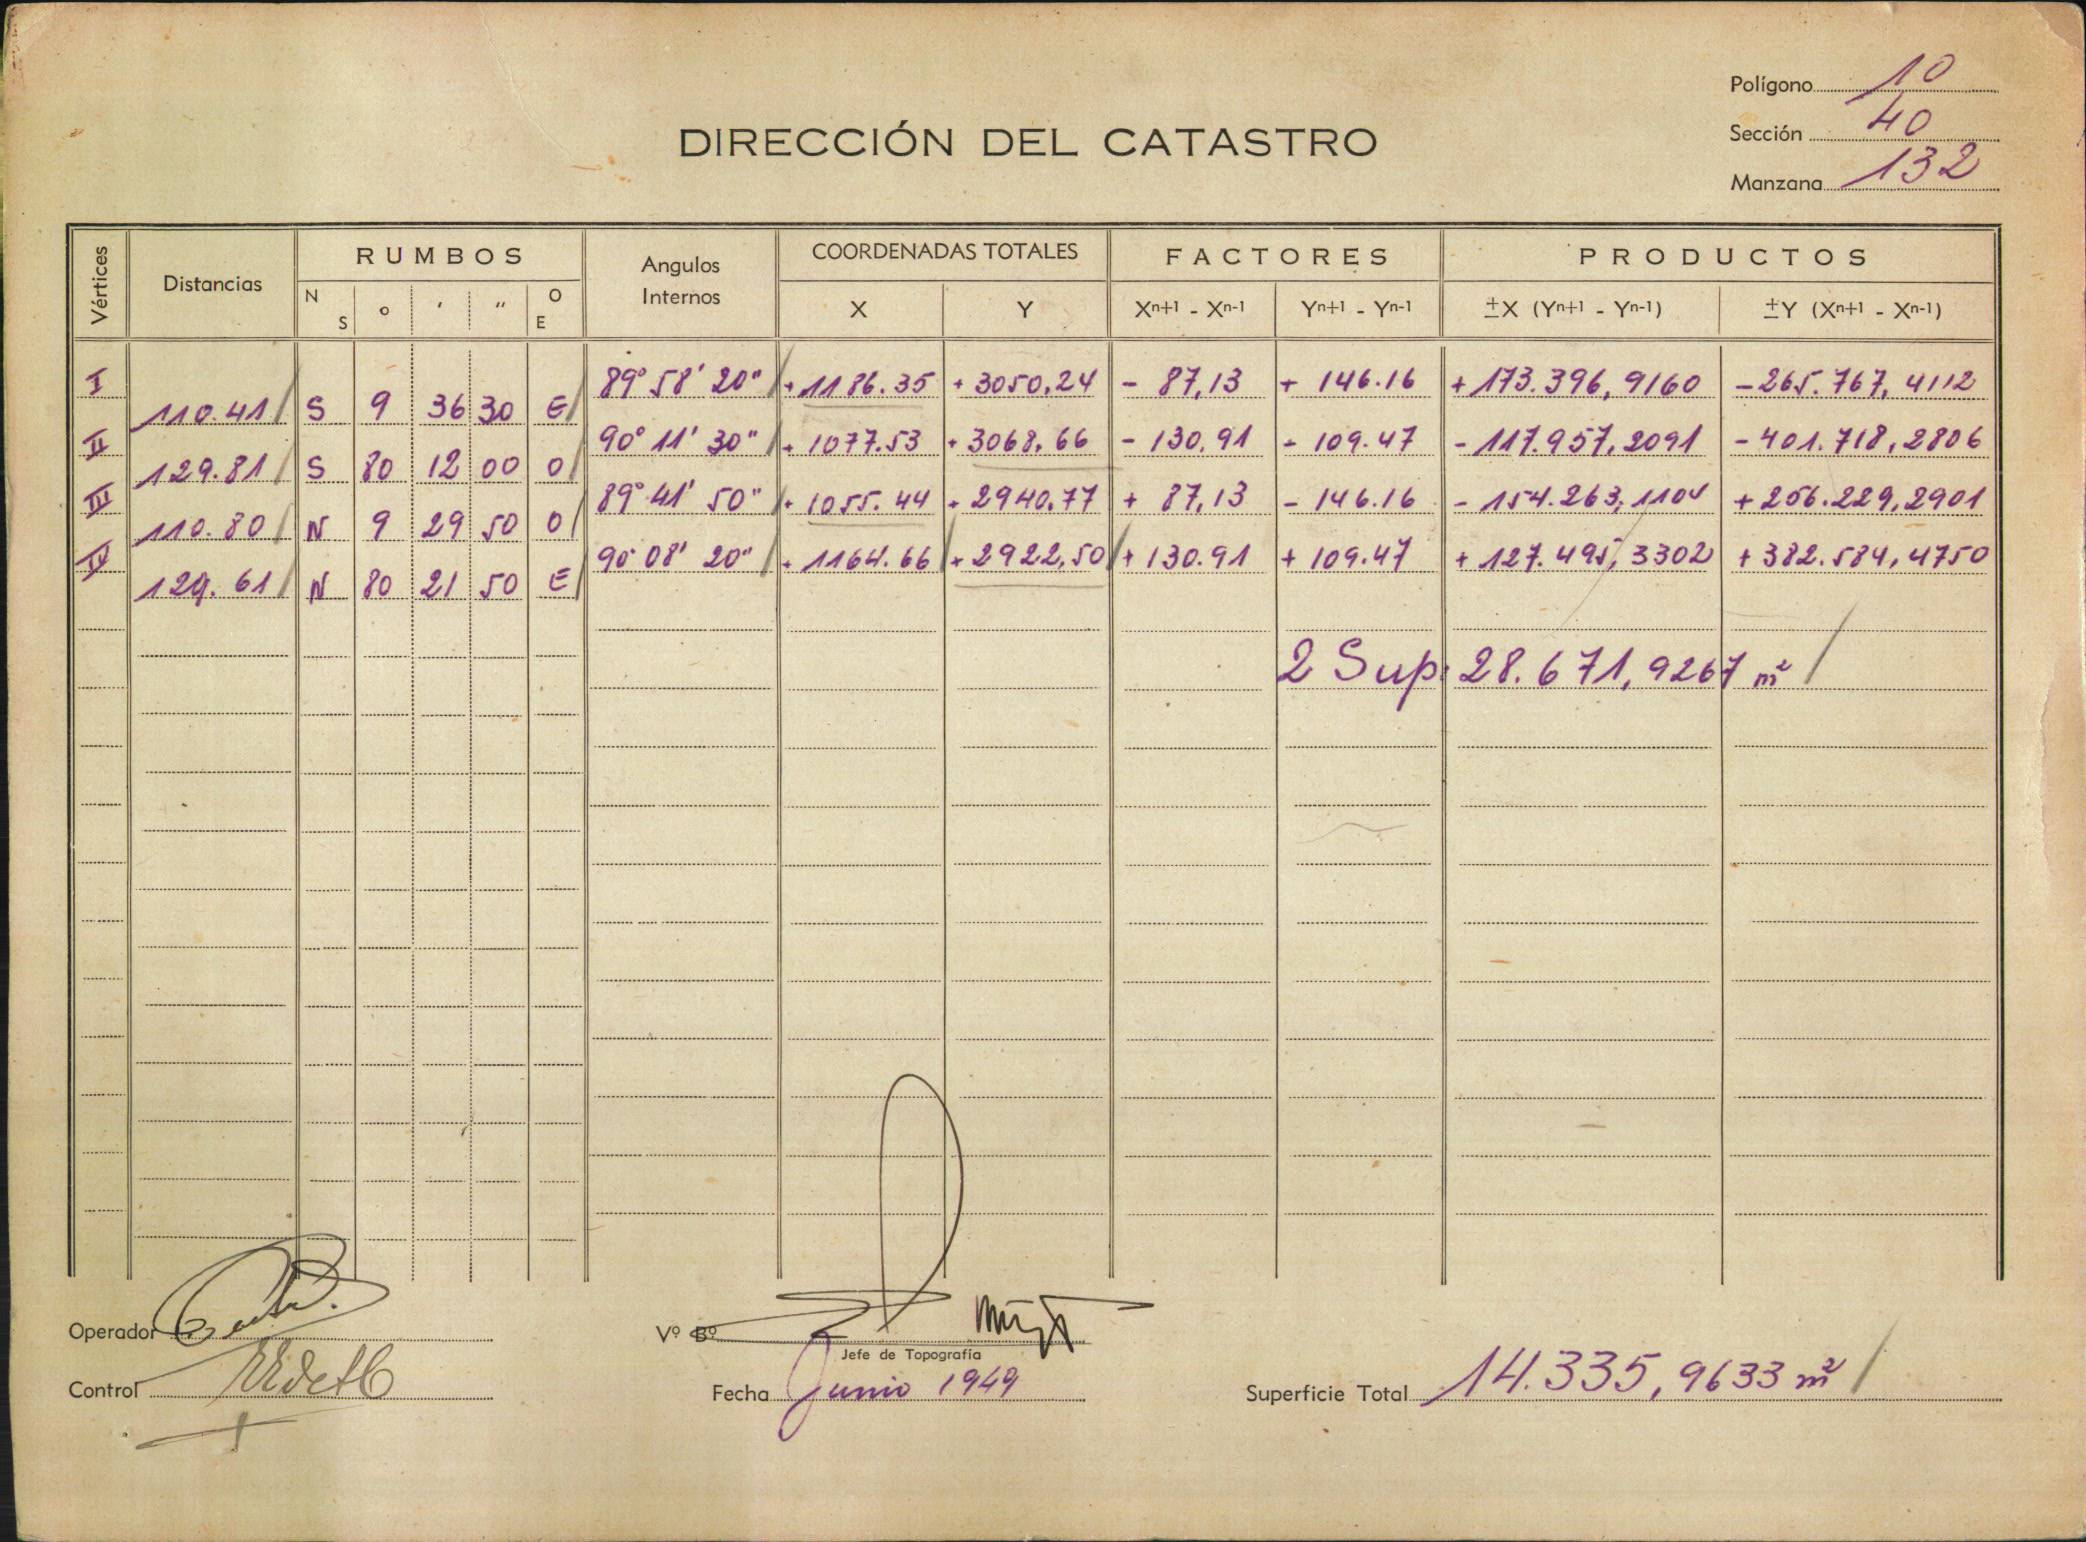 Polígono 10
DIRECCIÓN DEL CATASTRO
Sección 40
Manzana 132
Vértices Distancias RUMBOS Angulos Internos COORDENADAS TOTALES FACTORES PRODUCTOS
N S ° ′ ″ O E X Y Xn+1 - Xn-1 Yn+1 - Yn-1 ±X (Yn+1 - Yn-1) ±Y (Xn+1 - Xn-1)
I 89° 58' 20" +1186.35 +3050,24 - 87,13 + 146.16 +173.396,9160 -265.767,4112
110.41 S 9 36 30 E
II 90° 11' 30" +1077.53 +3068,66 - 130,91 - 109.47 -117.957,2091 -401.718,2806
129.81 S 80 12 00 O
III 89° 41' 50" +1055.44 +2940,77 + 87,13 - 146.16 -154.263,1104 +256.229,2901
110.80 N 9 29 50 O
IV 90° 08' 20" +1164.66 +2922,50 +130.91 +109.47 +127.495,3302 +382.584,4750
129.61 N 80 21 50 E
2 Sup: 28.671,9267 m²
Operador
Vº Bº
Jefe de Topografía
Control
Fecha Junio 1949
Superficie Total 14.335,9633 m²